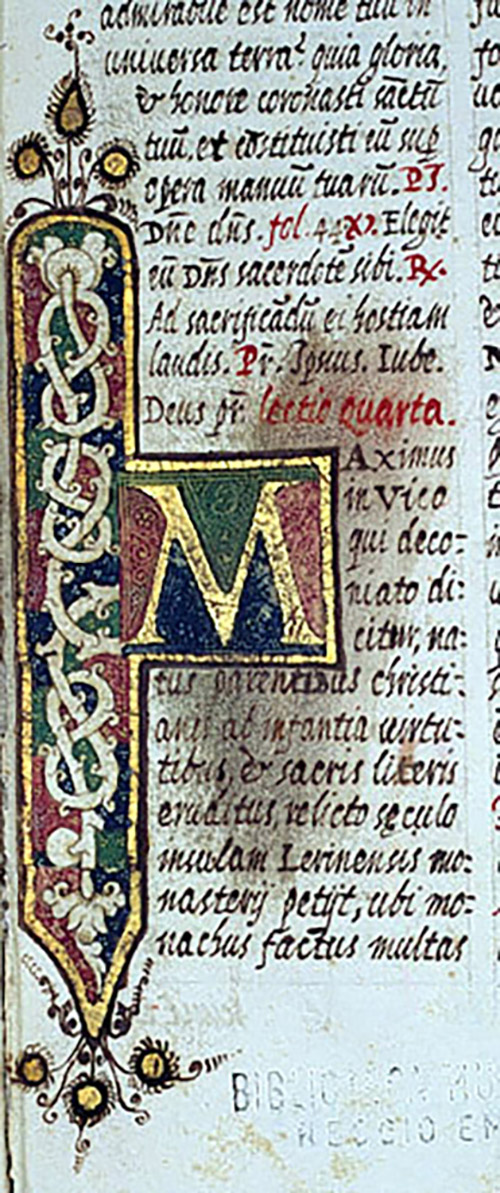 admirabile est nome tuu in
universa terra? quia gloria,
& honore coronasti sāctū
tuū, et cōstituisti eū sup
opera manuū tuarū. Ps.
Dn̄e dn̄s. fol. 44. Elegit
eū Dn̄s sacerdotē sibi. Rx.
Ad sacrificādū ei hostiam
laudis. Pr. Ipsus. Iube.
Deus pr. lectio quarta.
MAximus
in Vico
qui deco:
niato di:
citur, na:
tus parentibus christi:
anis ab infantia uirtu:
tibus, & sacris literis
eruditus, relicto sęculo
insulam Lerinensis mo:
nasterij petijt, ubi mo:
nachus factus multas